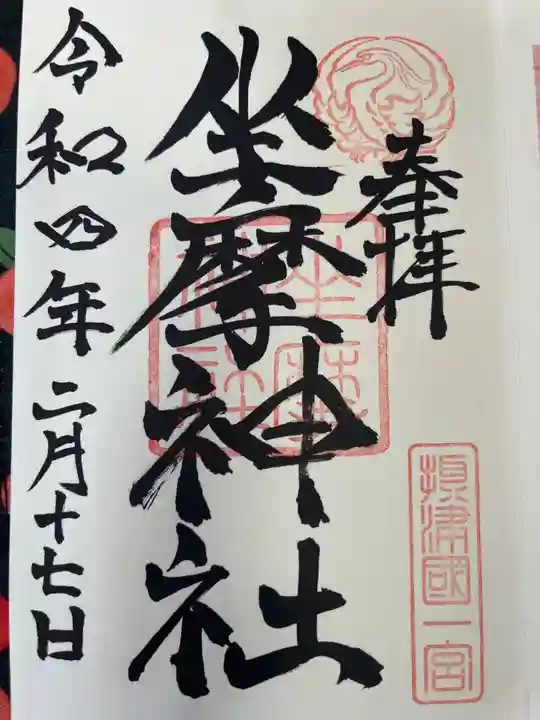 奉拝
攝津國一宮
坐摩神社
坐摩神社
令和四年二月十七日